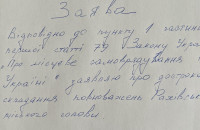 Заява
Відповідно до пункту 1 частини
першої статті 79 Закону Украї
"Про місцеве самоврядування
Україні" заявляю про достроко
складання повноважень Рахівсь
міського голови.